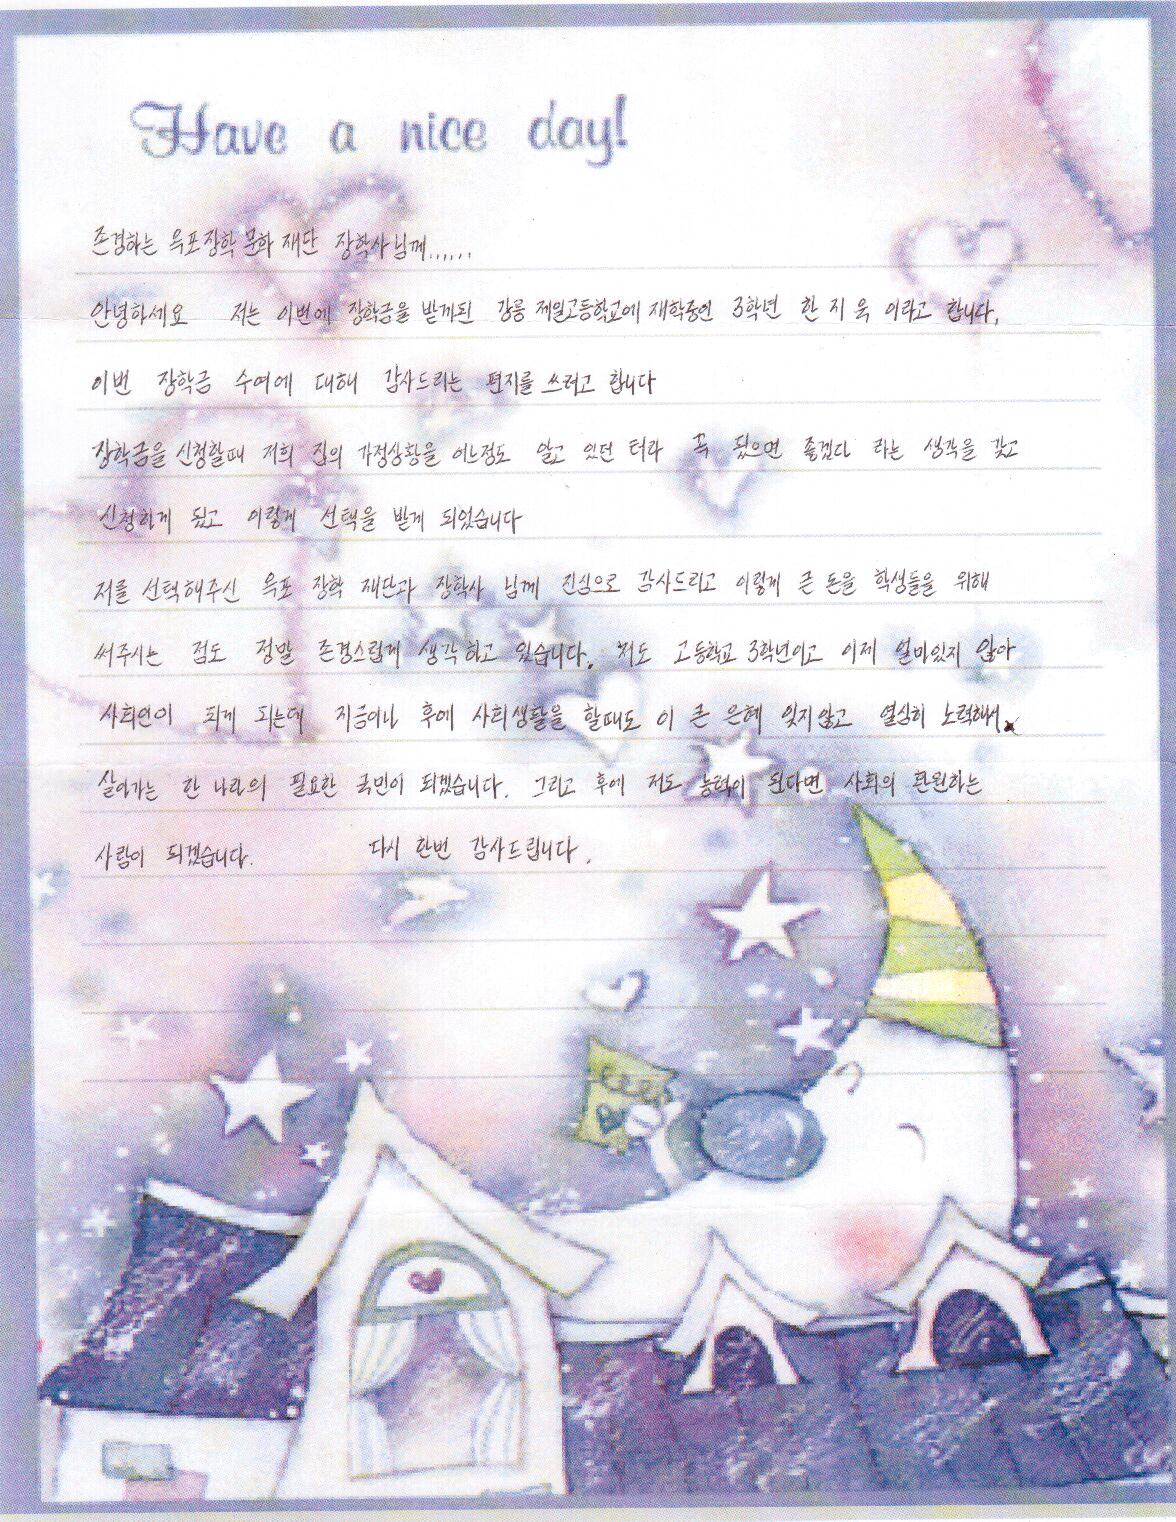 Have a nice day!
존경하는 옥포장학문화재단 장학사님께......
안녕하세요 저는 이번에 장학금을 받게된 강릉 제일고등학교에 재학중인 3학년 한 지 욱 이라고 합니다.
이번 장학금 수여에 대해 감사드리는 편지를 쓰려고 합니다
장학금을 신청할때 저희 집의 가정상황을 어느정도 알고 있던 터라 꼭 됬으면 좋겠다 라는 생각을 갖고
신청하게 됬고 이렇게 선택을 받게 되었습니다
저를 선택해주신 옥포 장학 재단과 장학사 님께 진심으로 감사드리고 이렇게 큰 돈을 학생들을 위해
써주시는 점도 정말 존경스럽게 생각하고 있습니다. 저도 고등학교 3학년이고 이제 얼마있지 않아
사회인이 되게 되는데 지금이나 후에 사회생활을 할때도 이 큰 은혜 잊지않고 열심히 노력해서
살아가는 한 나라의 필요한 국민이 되겠습니다. 그리고 후에 저도 능력이 된다면 사회의 환원하는
사람이 되겠습니다. 다시 한번 감사드립니다.